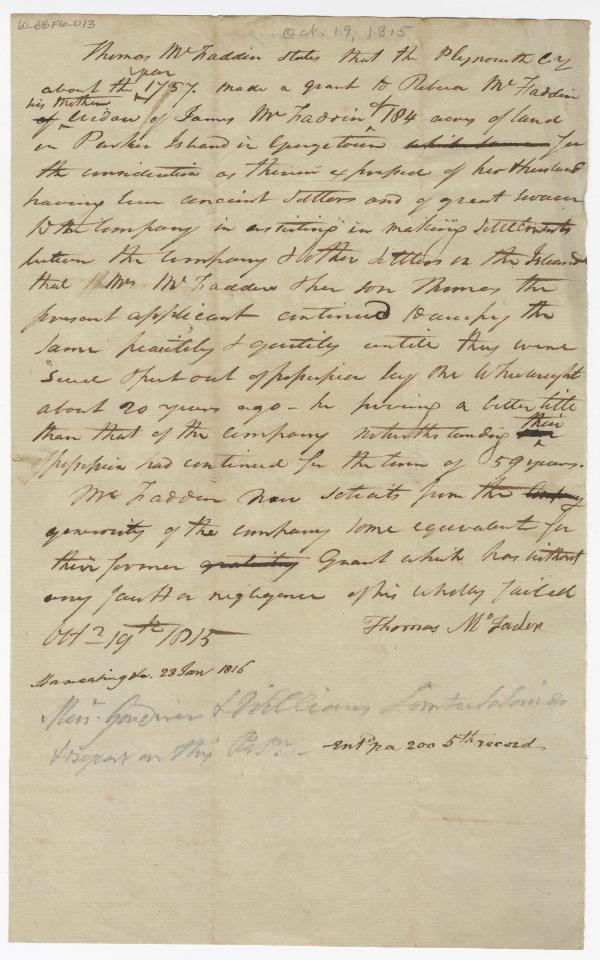 60-68F6-013
Oct. 19, 1815
Thomas McFaddin states that the Plymouth Cy
year
about the 1757. made a grant to Rebecca McFaddin
his mother
of Widow of James McFaddin of 184 acres of land
in Parker Island in Georgetown for
the consideration as therein expressed of her Husband
having been ancient settlers and of great service
to the Company in assisting in making settlements
between the Company & other settlers on the Island
that Mrs McFadden & her son Thomas the
present applicant continued to occupy the
same peacibly & quietly untile they were
sued & put out of possession by Mr Wheelwright
about 20 years ago - he proving a better title
than that of the Company notwithstanding their
possession had continued for the term of 59 years.
McFaddin now solicits from the Company
generosity of the company some equivalent for
their former gratuity Grant which has without
any fault or negligence of his wholly failed
Octr 19th 1815
Thomas McFaden
23 Jan 1816
Messrs. & Williams
& report on this Petn.
Entd pa 200 5th record